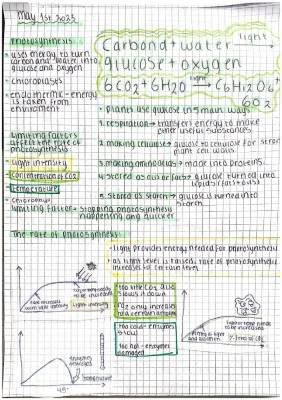 May 1st 2023
Photosynthesis
uses energy to turn
carbon and water into
glucose and oxygen
chloroplasts
endothermic - energy
is taken from
environment
Carbond + water light
glucose + oxygen
6CO2 + 6H2O light → C6H12O6 +
6O2
Plants use glucose in 5 main ways
1. respiration → transfers energy to make
other useful substances
2. making cellulose → glucose to cellulose for strong
plant cell walls
3. making amino acids → made into proteins.
4. Stored as oil or fats → glucose turned into
lipids (fats + oils)
5. Stored as starch → glucose is turned into
starch
Limiting factors
affect the rate of
photosynthesis:
Light intensity
concentration of CO2
temperature
chlorophyll
limiting factor - stopping photosynthesis
happening any quicker
The rate of photosynthesis
light provides energy needed for photosynthesis
as light level is raised, rate of photosynthesis
increases to certain level
to be increased
rate increases
light intensity
too little CO2 also
slows it down
only increases
to a certain amount
too cold - enzymes
slow
too hot - enzymes
damaged
enzymes
45°
temperature
needs
to be increased
% level of CO2